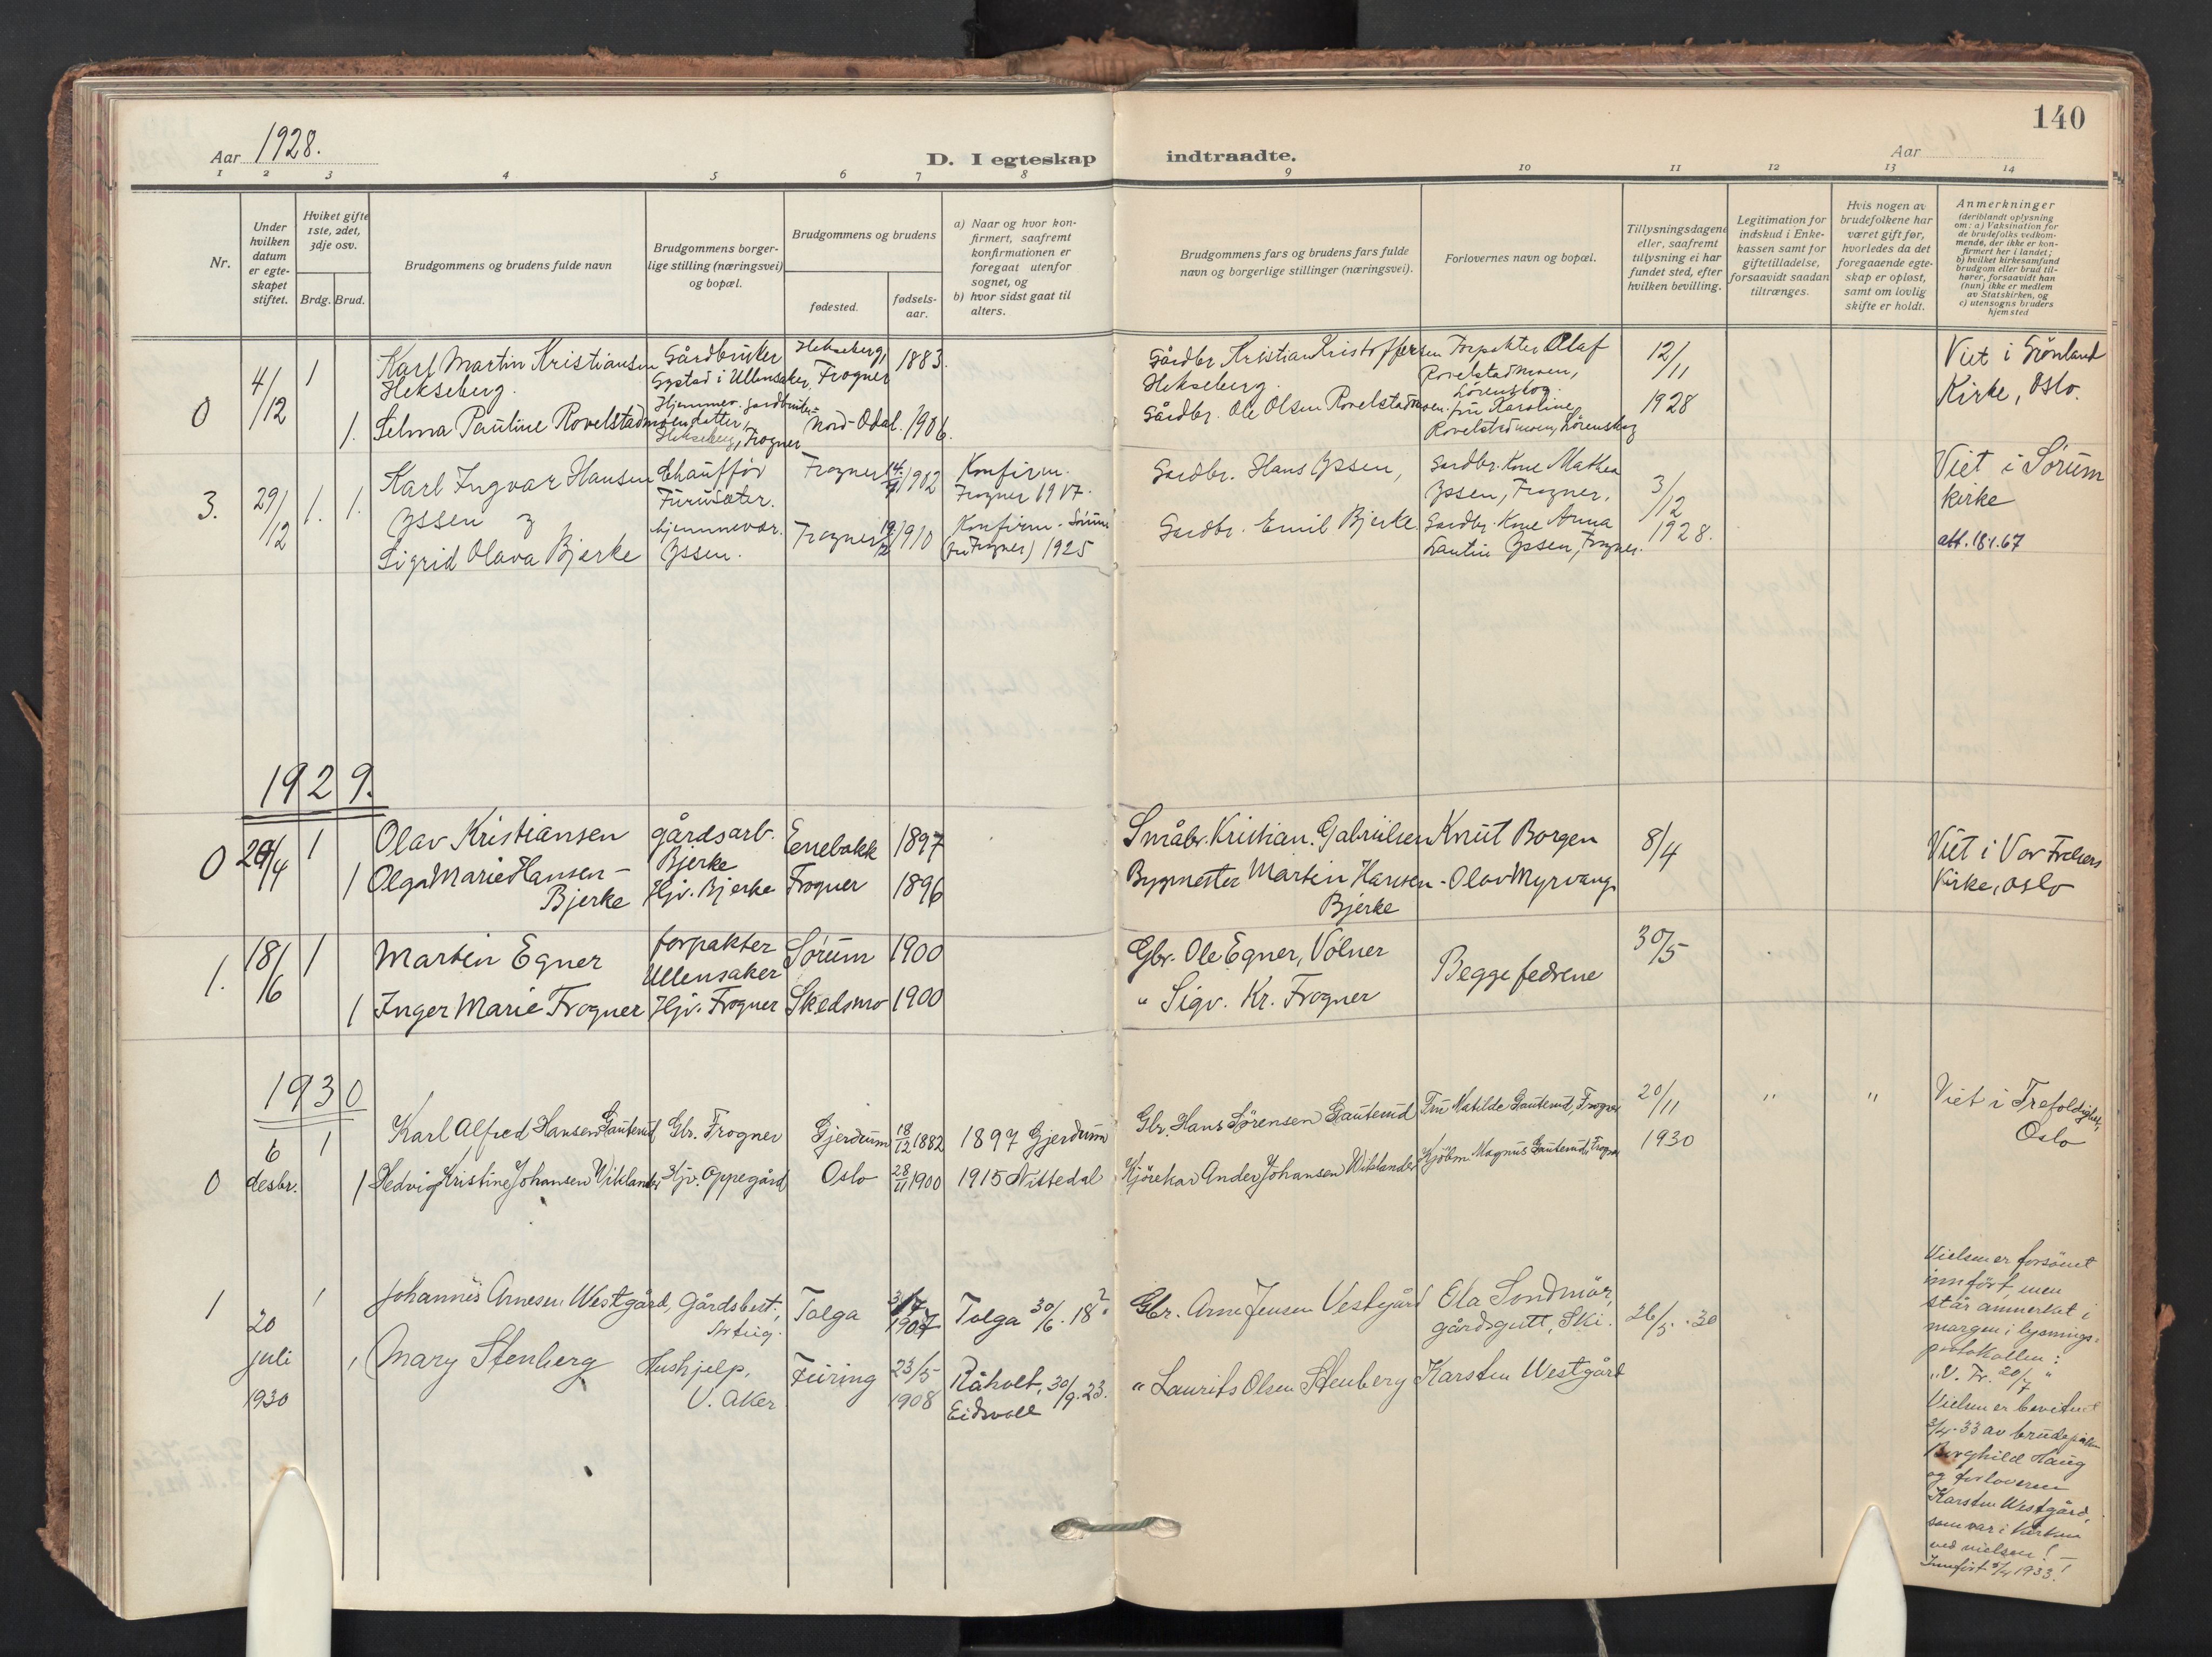 140
Aar 1928.
D. I egteskap indtraadte.
Aar
1 2 3 4 5 6 7 8 9 10 11 12 13 14
Nr.
Under hvilken datum er egte-skapet stiftet.
Hviket gifte 1ste, 2det, 3dje osv.
Brdg. Brud.
Brudgommens og brudens fulde navn
Brudgommens borger-lige stilling (næringsvei) og bopæl.
Brudgommens og brudens
fødested.
fødsels-aar.
a) Naar og hvor kon-firmert, saafremt konfirmationen er foregaat utenfor sognet, og
b) hvor sidst gaat til alters.
Brudgommens fars og brudens fars fulde navn og borgerlige stillinger (næringsvei).
Forlovernes navn og bopæl.
Tillysningsdagene eller, saafremt tillysning ei har fundet sted, efter hvilken bevilling.
Legitimation for indskud i Enke-kassen samt for giftetilladelse, forsaavidt saadan tiltrænges.
Hvis nogen av brudefolkene har været gift før, hvorledes da det foregaaende egte-skap er opløst, samt om lovlig skifte er holdt.
Anmerkninger
(deriblandt oplysning om: a) Vaksination for de brudefolks vedkom-mende, der ikke er kon-firmert her i landet;
b) hvilket kirkesamfund brudgom eller brud til-hører, forsaavidt han (hun) ikke er medlem av Statskirken, og
c) utensogns bruders hjemsted
0 4/12 1 Karl Martin Kristiansen Hekseberg. Gårdbruker Gystad i Ullensaker Hekseberg, Frogner 1883.
Gårdbr. Kristian Kristoffersen Hekseberg. Forpakter Olaf Rovelstadmoen, Lørenskog. 12/11
Viet i Grønland Kirke, Oslo.
1. Selma Pauline Rovelstadmoen Hjemmev. gardbruker-datter, Hekseberg, Frogner Nord-Odal. 1906.
Gårdbr. Ole Olsen Rovelstadmoen. fru Karoline Rovelstadmoen, Lørenskog 1928
3. 29/12 1. 1. Karl Ingvar Hansen Yssen & Chauffør Furusæter. Frogner 1902 Konfirm. Frogner 1917.
Gardbr. Hans Yssen, Gardbr. Kone Mathea Yssen, Frogner, 3/12
Viet i Sørum kirke
Sigrid Olava Bjerke hjemmevær. Yssen. Frogner 1910 Konfirm. Sørum (fra Frogner) 1925
Gardbr. Emil Bjerke. Gardbr. Kone Anna Lautin Yssen, Frogner. 1928.
att. 18.1.67
1929.
0 20/4 1 Olav Kristiansen gårdsarb. Bjerke Enebakk 1897
Småbr. Kristian Gabrielsen Knut Borgen 8/4
Viet i Vor Frelsers Kirke, Oslo
1 Olga Marie Hansen - Bjerke Hjv. Bjerke Frogner 1896
Bygmester Martin Hansen - Bjerke Olav Myrvang
1. 18/6 1 Martin Egner forpakter Ullensaker Sørum 1900
Gbr. Ole Egner, Vølner Begge fedrene 30/5
1 Inger Marie Frogner Hjv. Frogner Skedsmo 1900
" Sigv. Kr. Frogner
1930
6 1 Karl Alfred Hansen Gauterud Gbr. Frogner Gjerdrum 18/12 1882 1897 Gjerdrum
Gbr. Hans Sørensen Gauterud Fru Matilde Gauterud, Frogner 20/11 " "
Viet i Trefoldighet, Oslo
0 desbr. 1 Hedvig Kristine Johansen Viklander Hjv. Oppegård Oslo 28/11 1900 1915 Nittedal
Kjørekar Anders Johansen Wiklander Kjøbm. Magnus Gauterud, Frogner 1930
1 20 juli 1930 1 Johannes Arnesen Westgård, Gårdsbest., Tolga 1907 Tolga 30/6. 18?
Gbr. Arne Jensen Vestgård Ola Sondmør, gårdsgutt, Ski. 26/5. 30
1 Mary Stenberg Hushjelp, V. Aker. Feiring 23/5 1908 Råholt, Eidsvoll 30/9. 23.
" Laurits Olsen Stenberg Karsten Westgård
Vielsen er forsømt
innført, men
står anmerket i
margen i lysnings-
protokollen:
"V. Fr. 20/7"
Vielsen er bevitnet
3/4-33 av brudepiken
Borghild Haug
og forloveren
Karsten Westgård,
som var i kirken
ved vielsen! -
Innført 5/4 1933!